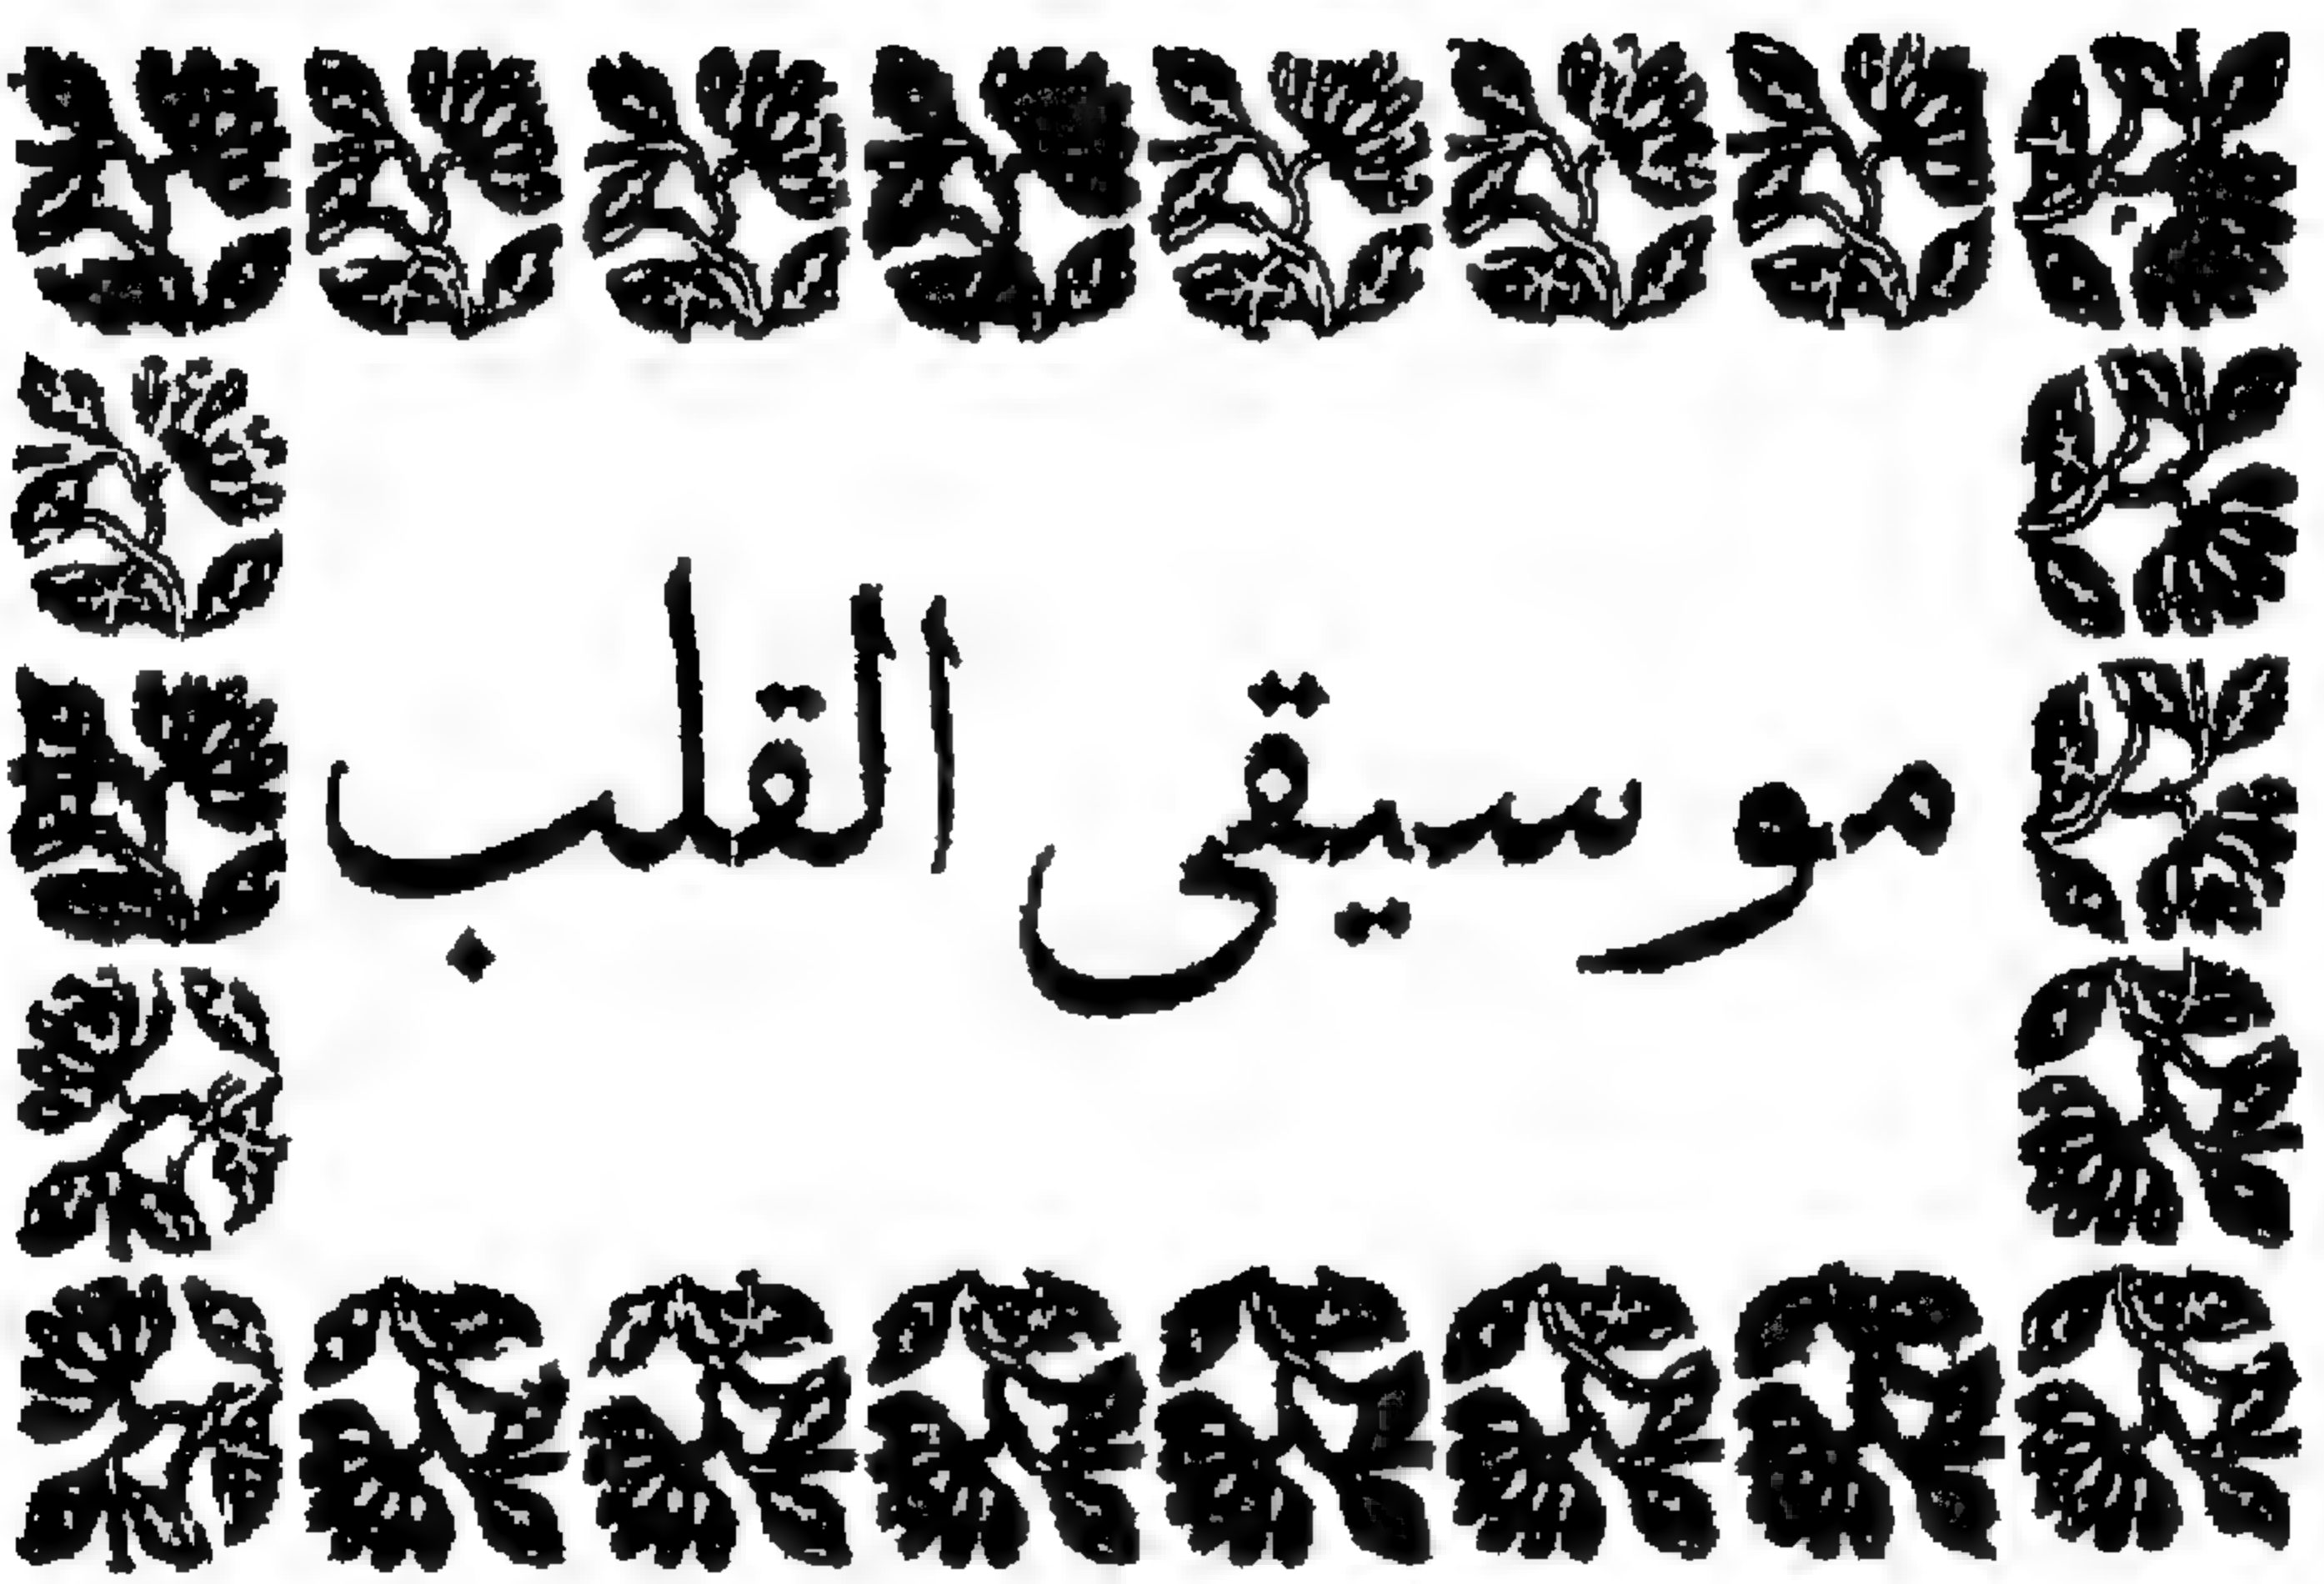 موسيقى القلب